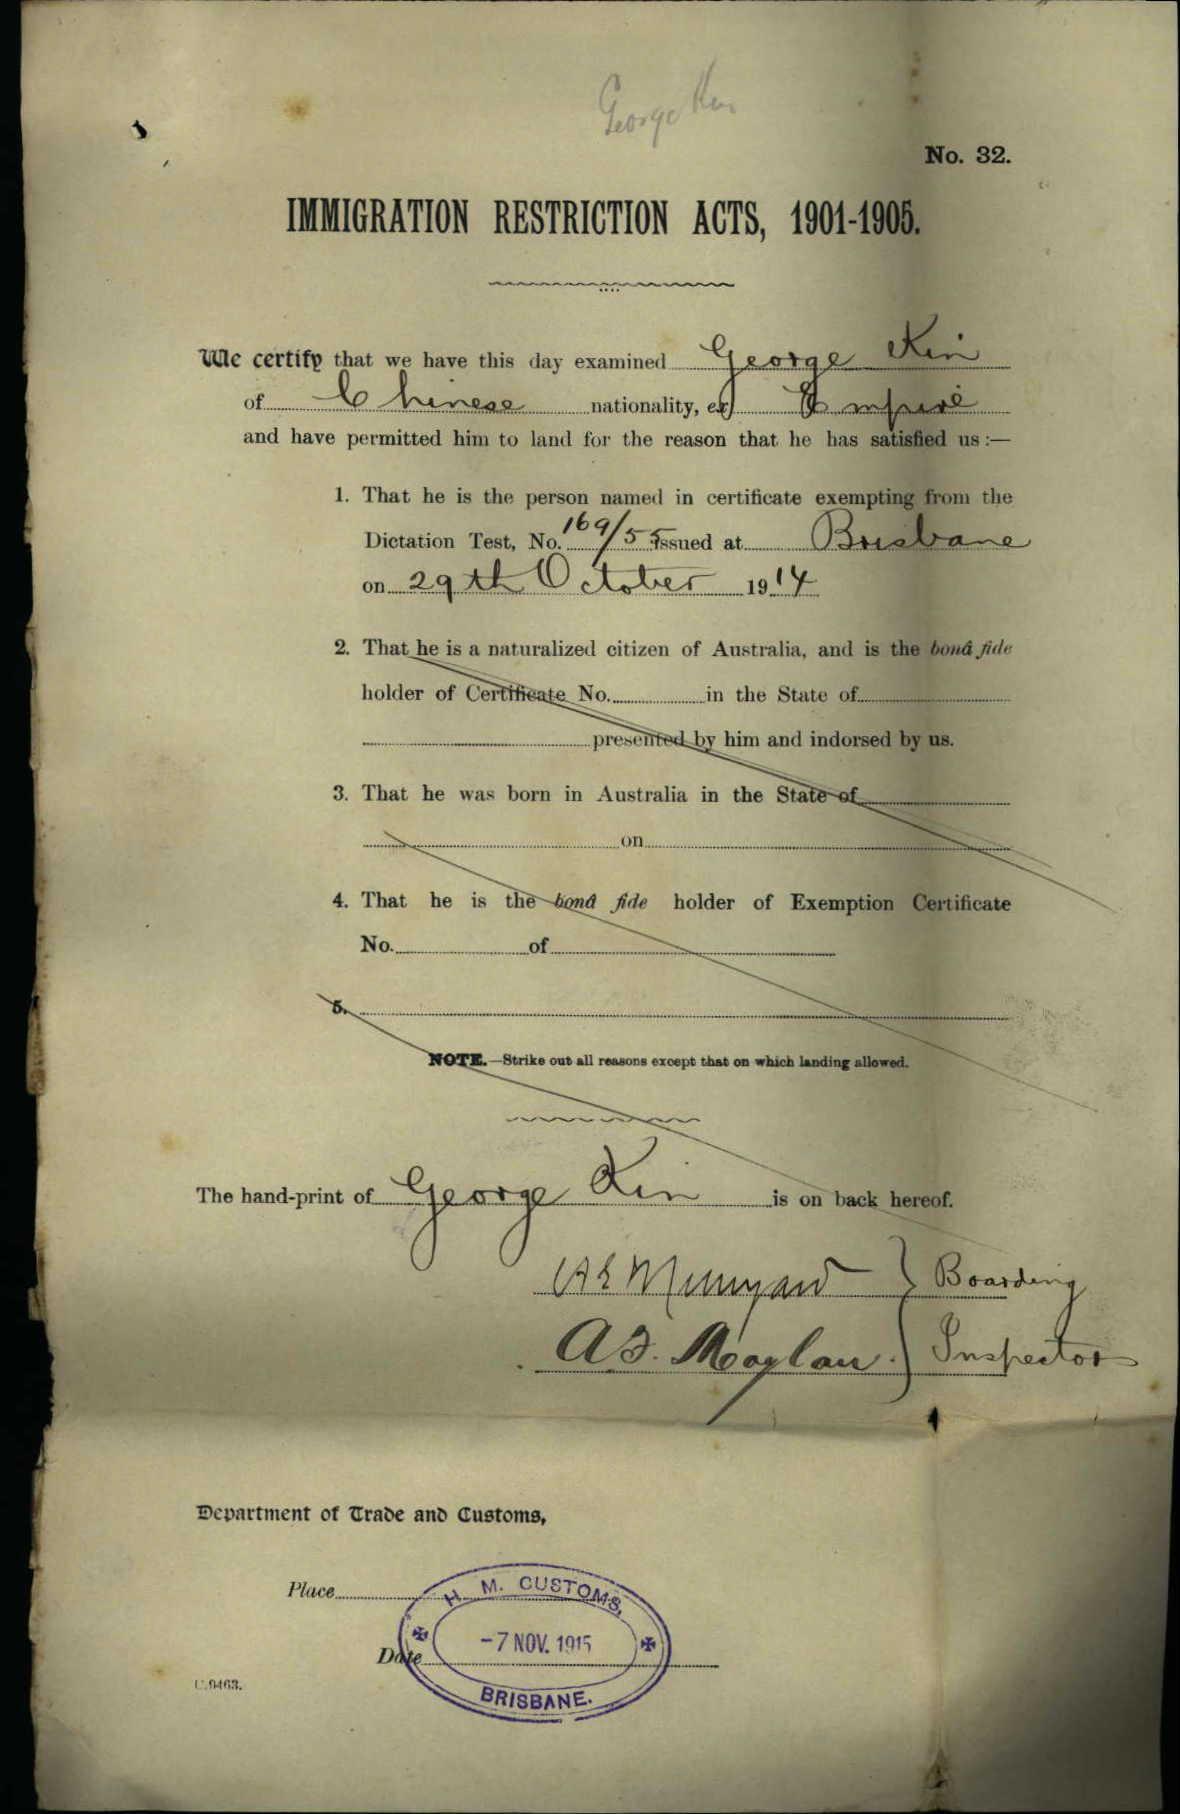 George Kin
No. 32.
IMMIGRATION RESTRICTION ACTS, 1901-1905.
We certify that we have this day examined George Kin
of Chinese nationality, ex Empire
and have permitted him to land for the reason that he has satisfied us :—
1. That he is the person named in certificate exempting from the
Dictation Test, No. 169/55 issued at Brisbane
on 29th October 1914
2. That he is a naturalized citizen of Australia, and is the bonâ fide
holder of Certificate No. in the State of
presented by him and indorsed by us.
3. That he was born in Australia in the State of
on
4. That he is the bonâ fide holder of Exemption Certificate
No. of
5.
NOTE.—Strike out all reasons except that on which landing allowed.
The hand-print of George Kin is on back hereof.
Boarding
A F. Inspectors
Department of Trade and Customs,
Place
H. M. CUSTOMS,
-7 NOV. 1915
Date
BRISBANE.
C.9463.